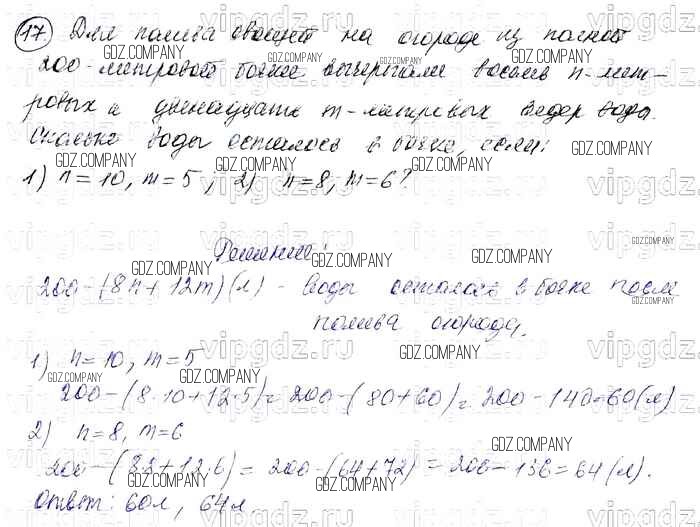 17) Для полива овощей на огороде из полной
200-литровой бочки вычерпали восемь n-лит-
ровых и двенадцать m-литровых ведер воды.
Сколько воды осталось в бочке, если:
1) n=10, m=5; 2) n=8, m=6?
Решение:
200-(8n+12m)(л) - воды осталось в бочке после
полива огорода.
1) n=10, m=5
200-(8·10+12·5)=200-(80+60)=200-140=60(л)
2) n=8, m=6
200-(8·8+12·6)=200-(64+72)=200-136=64(л).
Ответ: 60л, 64л
GDZ.COMPANY
vipgdz.ru